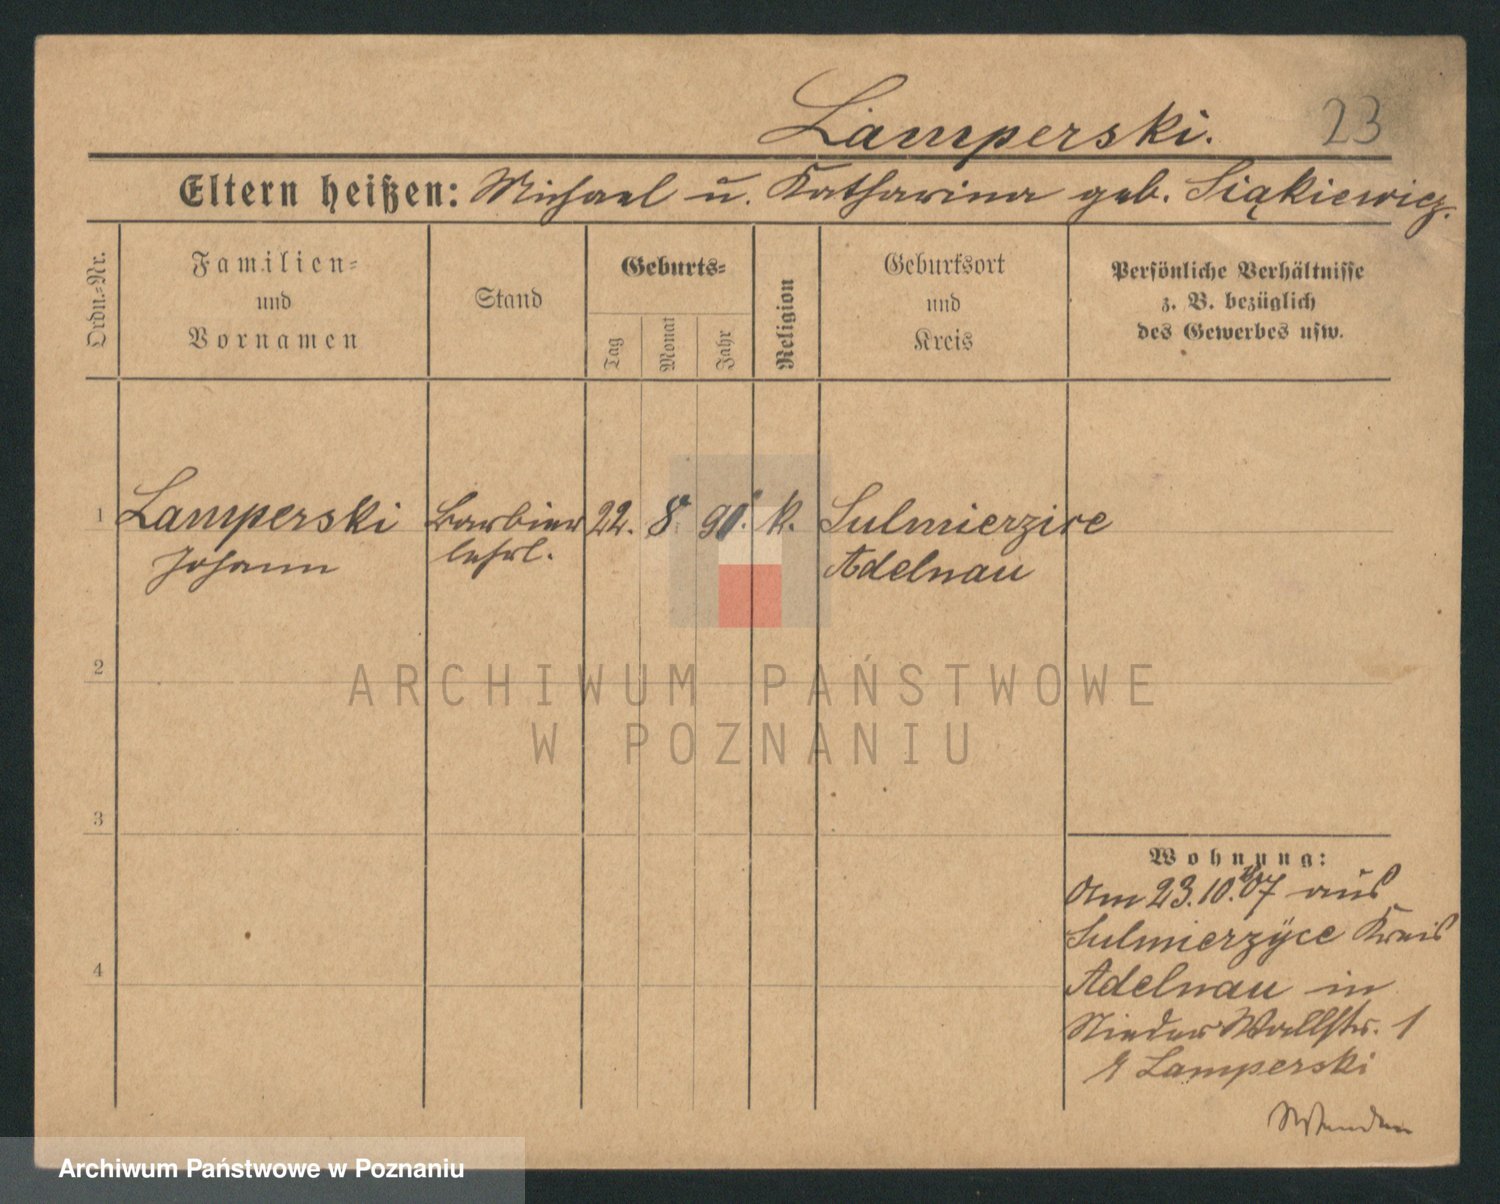 Lamperski. 23
Eltern heißen: Michael u. Katharina geb. Siąkiewicz.
Ordn.-Nr.
Familien-
und
Vornamen
Stand
Geburts-
Tag
Monat
Jahr
Religion
Geburtsort
und
Kreis
Persönliche Verhältnisse
z. B. bezüglich
des Gewerbes usw.
1 Lamperski Barbier 22. 8. 90. k. Sulmierzice
Johann lehrl. Adelnau
2
ARCHIWUM PAŃSTWOWE
W POZNANIU
3
Wohnung:
Am 23.10.07 aus
Sulmierzyce Kreis
4
Adelnau in
Nieder Wallstr. 1
Lamperski
Wenden
Archiwum Państwowe w Poznaniu